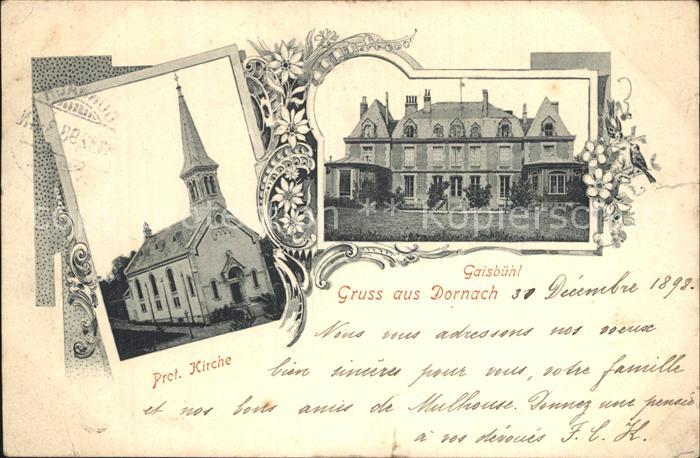 Prot. Kirche
Gaisbühl
Gruss aus Dornach 30 Décembre 1898.
Nous vous adressons nos voeux
bien sincères pour vous, votre famille
et nos bons amis de Mulhouse. Donnez une pensée
à vos dévoués F. C. K.
Kopierschutz